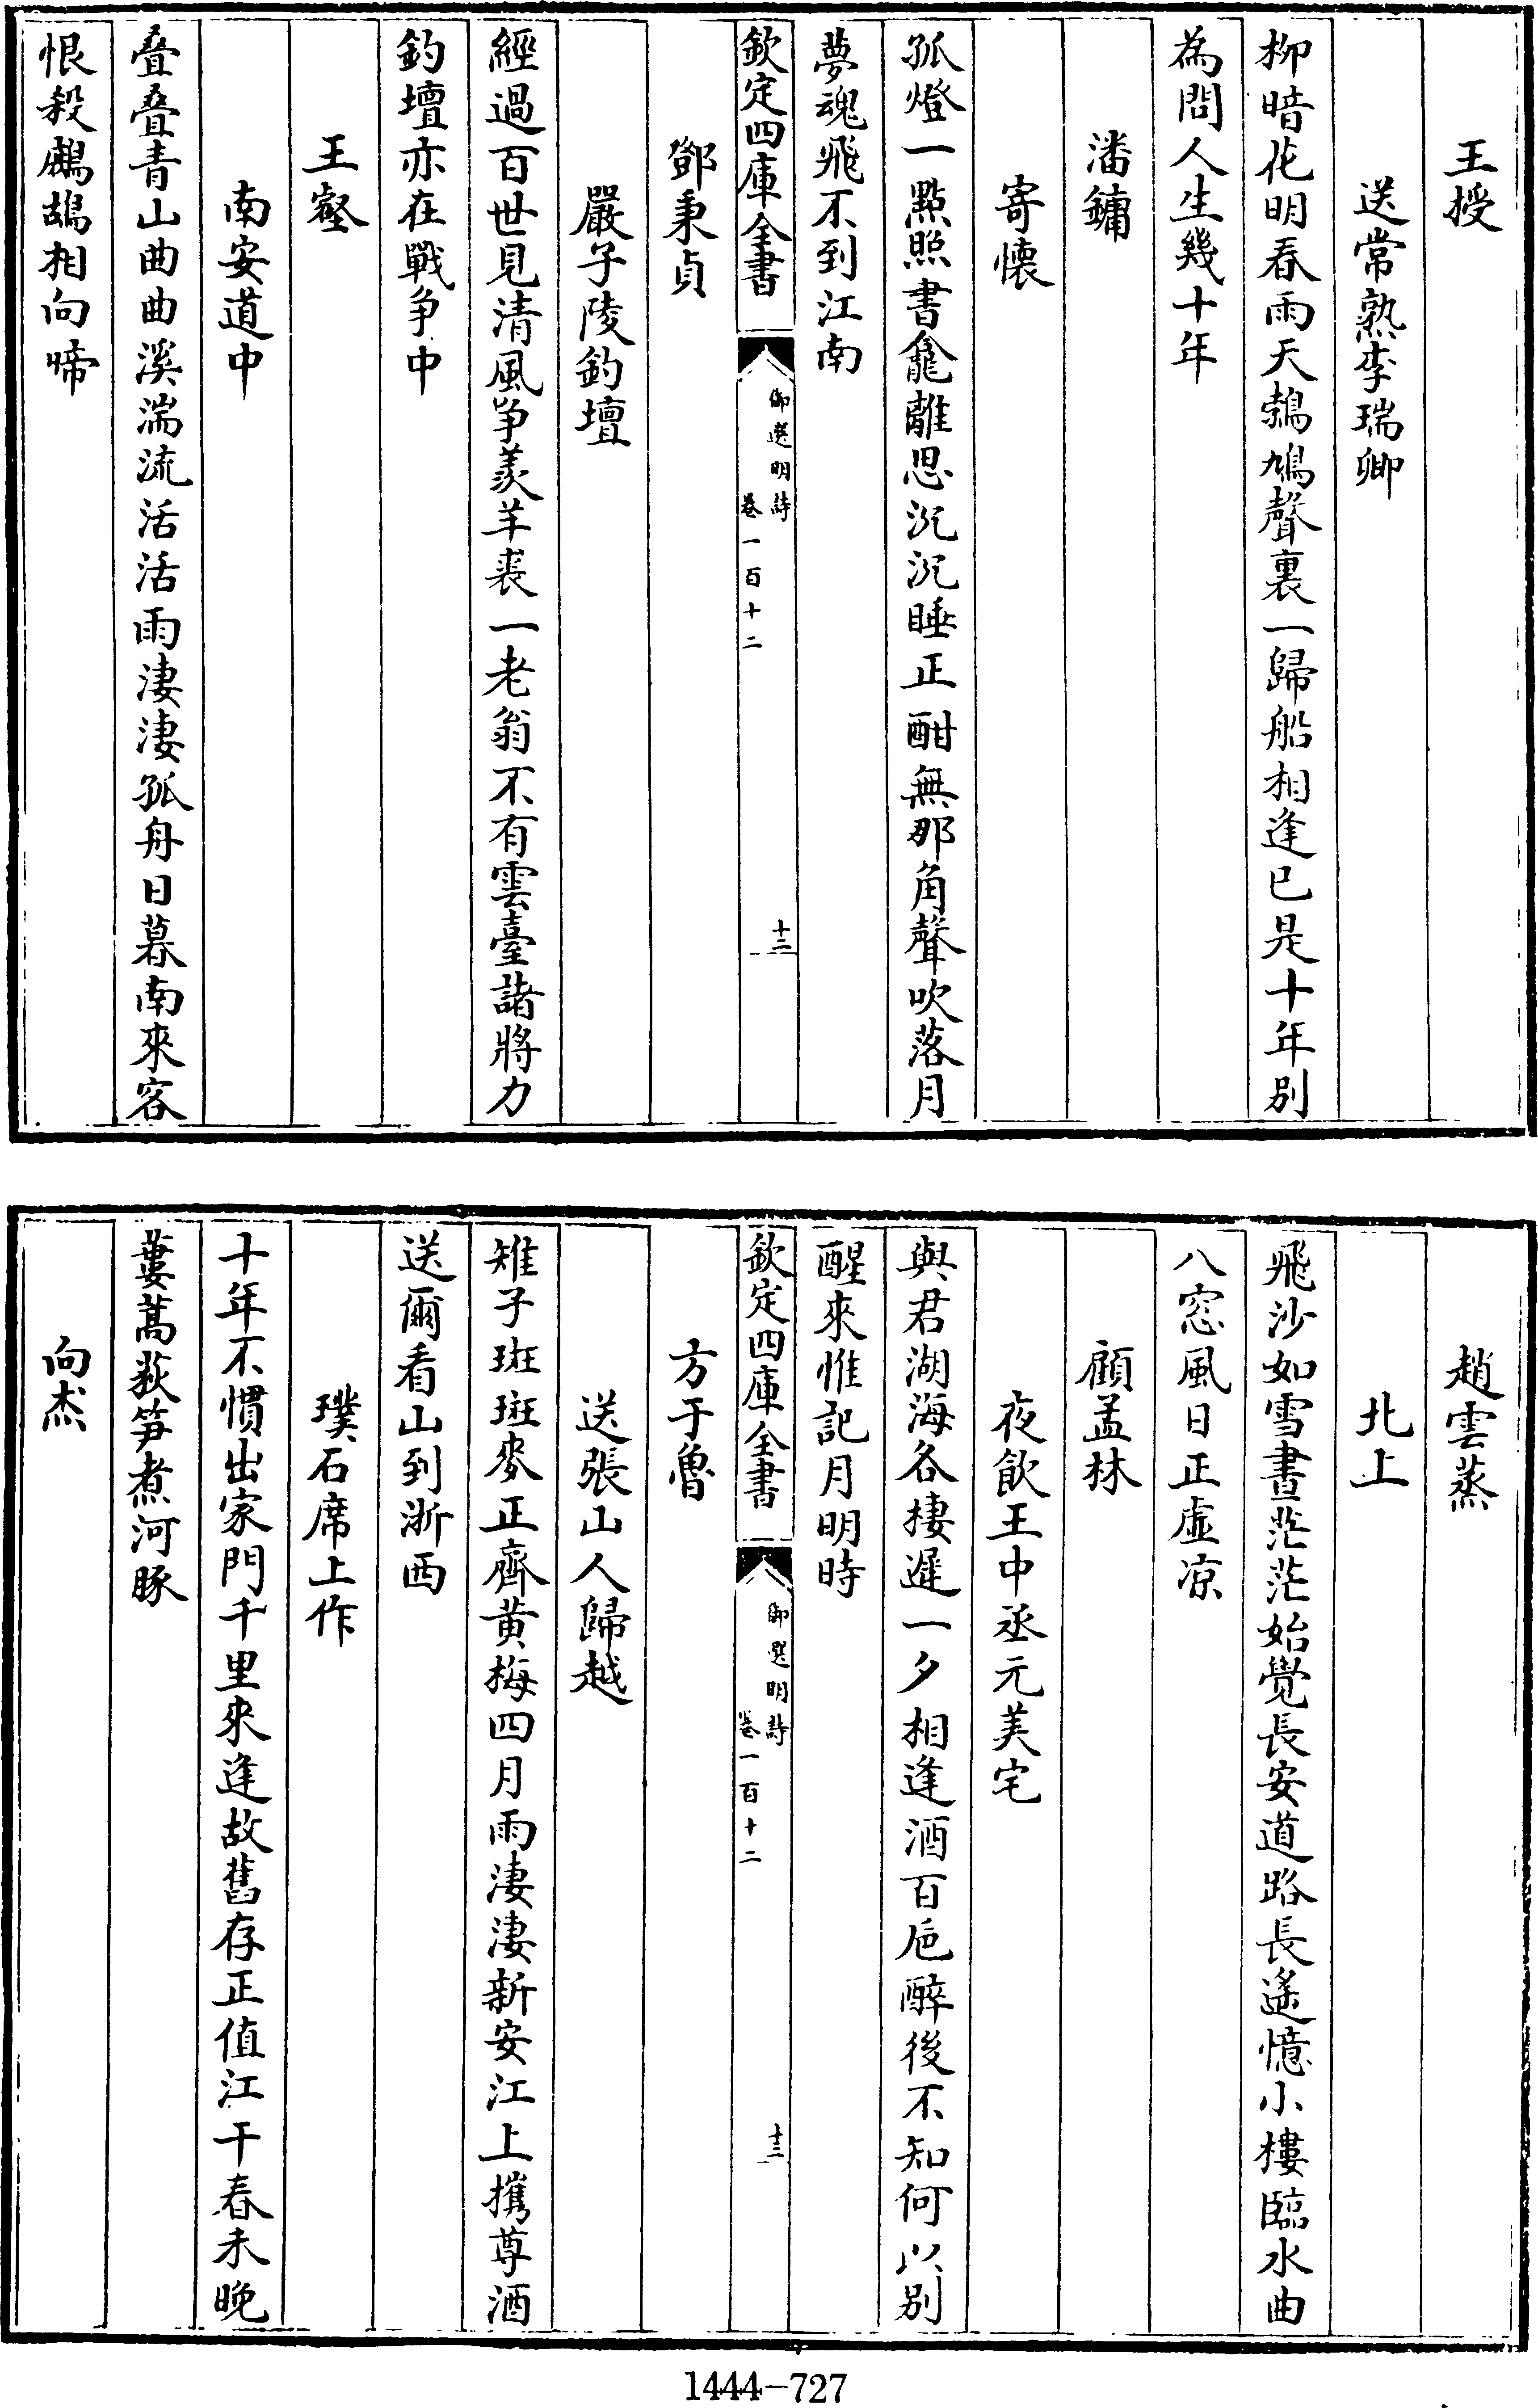 王授
送常熟李瑞卿
柳暗花明春雨天鵓鳩聲裏一歸船相逢已是十年別
為問人生幾十年
潘鏞
寄懷
孤燈一點照書龕離思沉沉睡正酣無那角聲吹落月
夢魂飛不到江南
欽定四庫全書
御選明詩
卷一百十二
十二
鄧秉貞
嚴子陵釣壇
經過百世見清風爭羨羊裘一老翁不有雲臺諸將力
釣壇亦在戰爭中
王壑
南安道中
疊疊青山曲曲溪湍流活活雨淒淒孤舟日暮南來客
恨殺鷓鴣相向啼
趙雲蒸
北上
飛沙如雪晝茫茫始覺長安道路長遙憶小樓臨水曲
八窓風日正虛凉
顧孟林
夜飲王中丞元美宅
與君湖海各棲遲一夕相逢酒百巵醉後不知何以別
醒來惟記月明時
欽定四庫全書
御選明詩
卷一百十二
十三
方于魯
送張山人歸越
雉子斑斑麥正齊黄梅四月雨淒淒新安江上攜尊酒
送爾看山到浙西
璞石席上作
十年不慣出家門千里來逢故舊存正值江干春未晚
蔞蒿荻笋煮河豚
向杰
1444-727